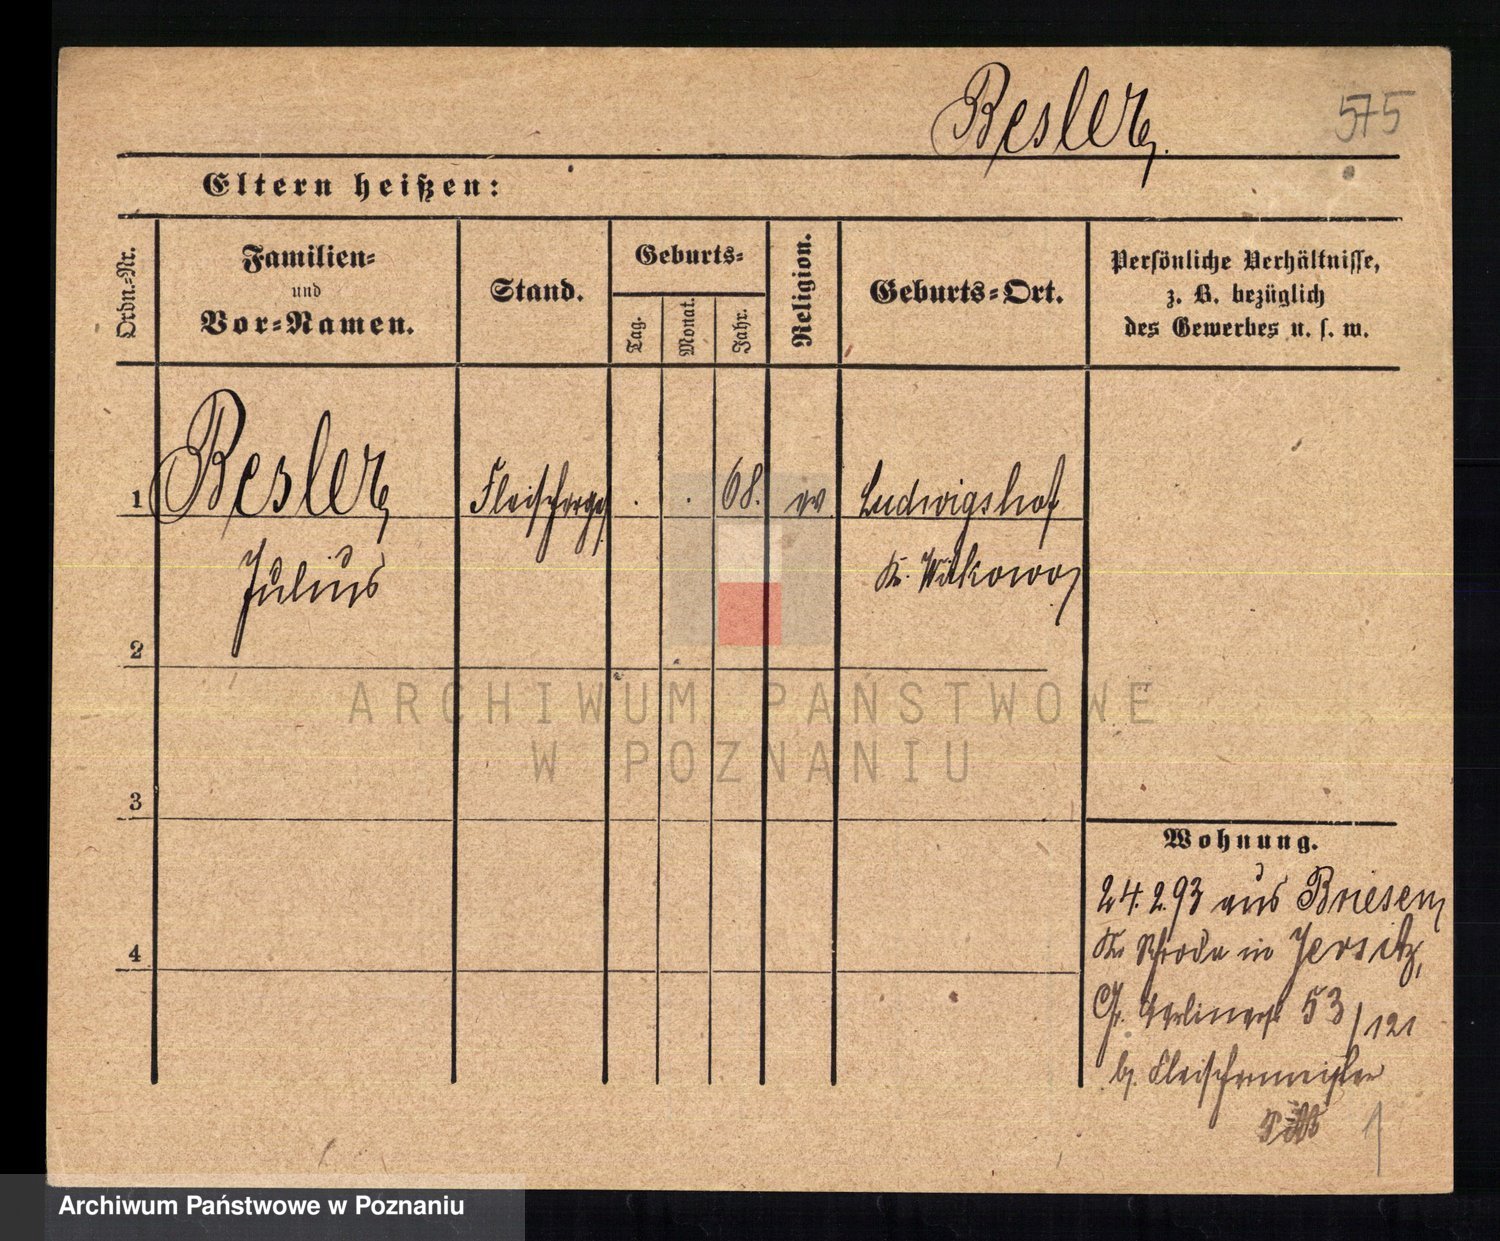 Besler.
575
Eltern heißen:
Ordn.-Nr.
Familien-
und
Vor-Namen.
Stand.
Geburts-
Tag.
Monat.
Jahr.
Religion.
Geburts-Ort.
Persönliche Verhältnisse,
z. B. bezüglich
des Gewerbes u. s. w.
1 Besler Fleischerges . . 68. ev Ludwigshof
Julius Kr. Witkowo
2
3
4
Wohnung.
24.2.93 aus Briesen
Kr Schroda in Jersitz,
Gr. Berlinerst 53/121
b. Fleischermeister
1
ARCHIWUM PAŃSTWOWE
W POZNANIU
Archiwum Państwowe w Poznaniu